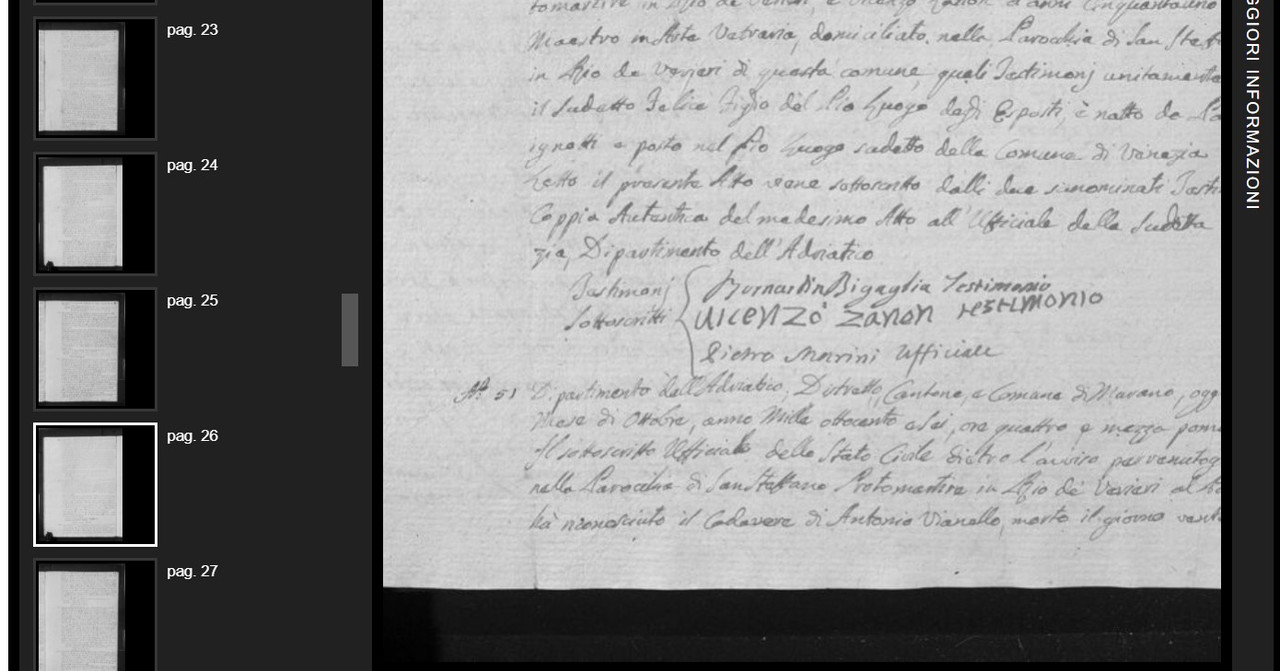 pag. 23
pag. 24
pag. 25
pag. 26
pag. 27
tomartire in Rio de Verieri, e Vicenzo Zanon d'anni Cinquantauno
Maestro in Arte Vetraria, domiciliato nella Parocchia di San Steff
in Rio de Verieri di questa comune, quali Testimonj unitamente
il sudetto Felice Figlio del Pio Luogo degli Esposti, è natto de Pa
ignotti e posto nel Pio Luogo sudetto della Comune di Venezia
Letto il presente Atto viene sottoscritto dalli due sunominati Testi
Coppia Autentica del medesimo Atto all'Ufficiale della Sudetta
zia, Dipartimento dell'Adriatico
Testimonj
Sottoscritti
Bernardin Bigaglia Testimonio
Vicenzo Zanon testimonio
Pietro Marini Ufficiale
N.º 51 Dipartimento dell'Adriatico, Distretto, Cantone, e Comune di Murano, ogg
Mese di Ottobre, anno Mille ottocento e sei, ore quattro e mezza pome
Il sottoscritto Ufficiale dello Stato Civile dietro l'avviso pervenutog
nella Parochia di San Steffano Protomartire in Rio de Verieri al
hà riconosciuto il Cadavere di Antonio Vianello, morto il giorno vent
GGIORI INFORMAZIONI